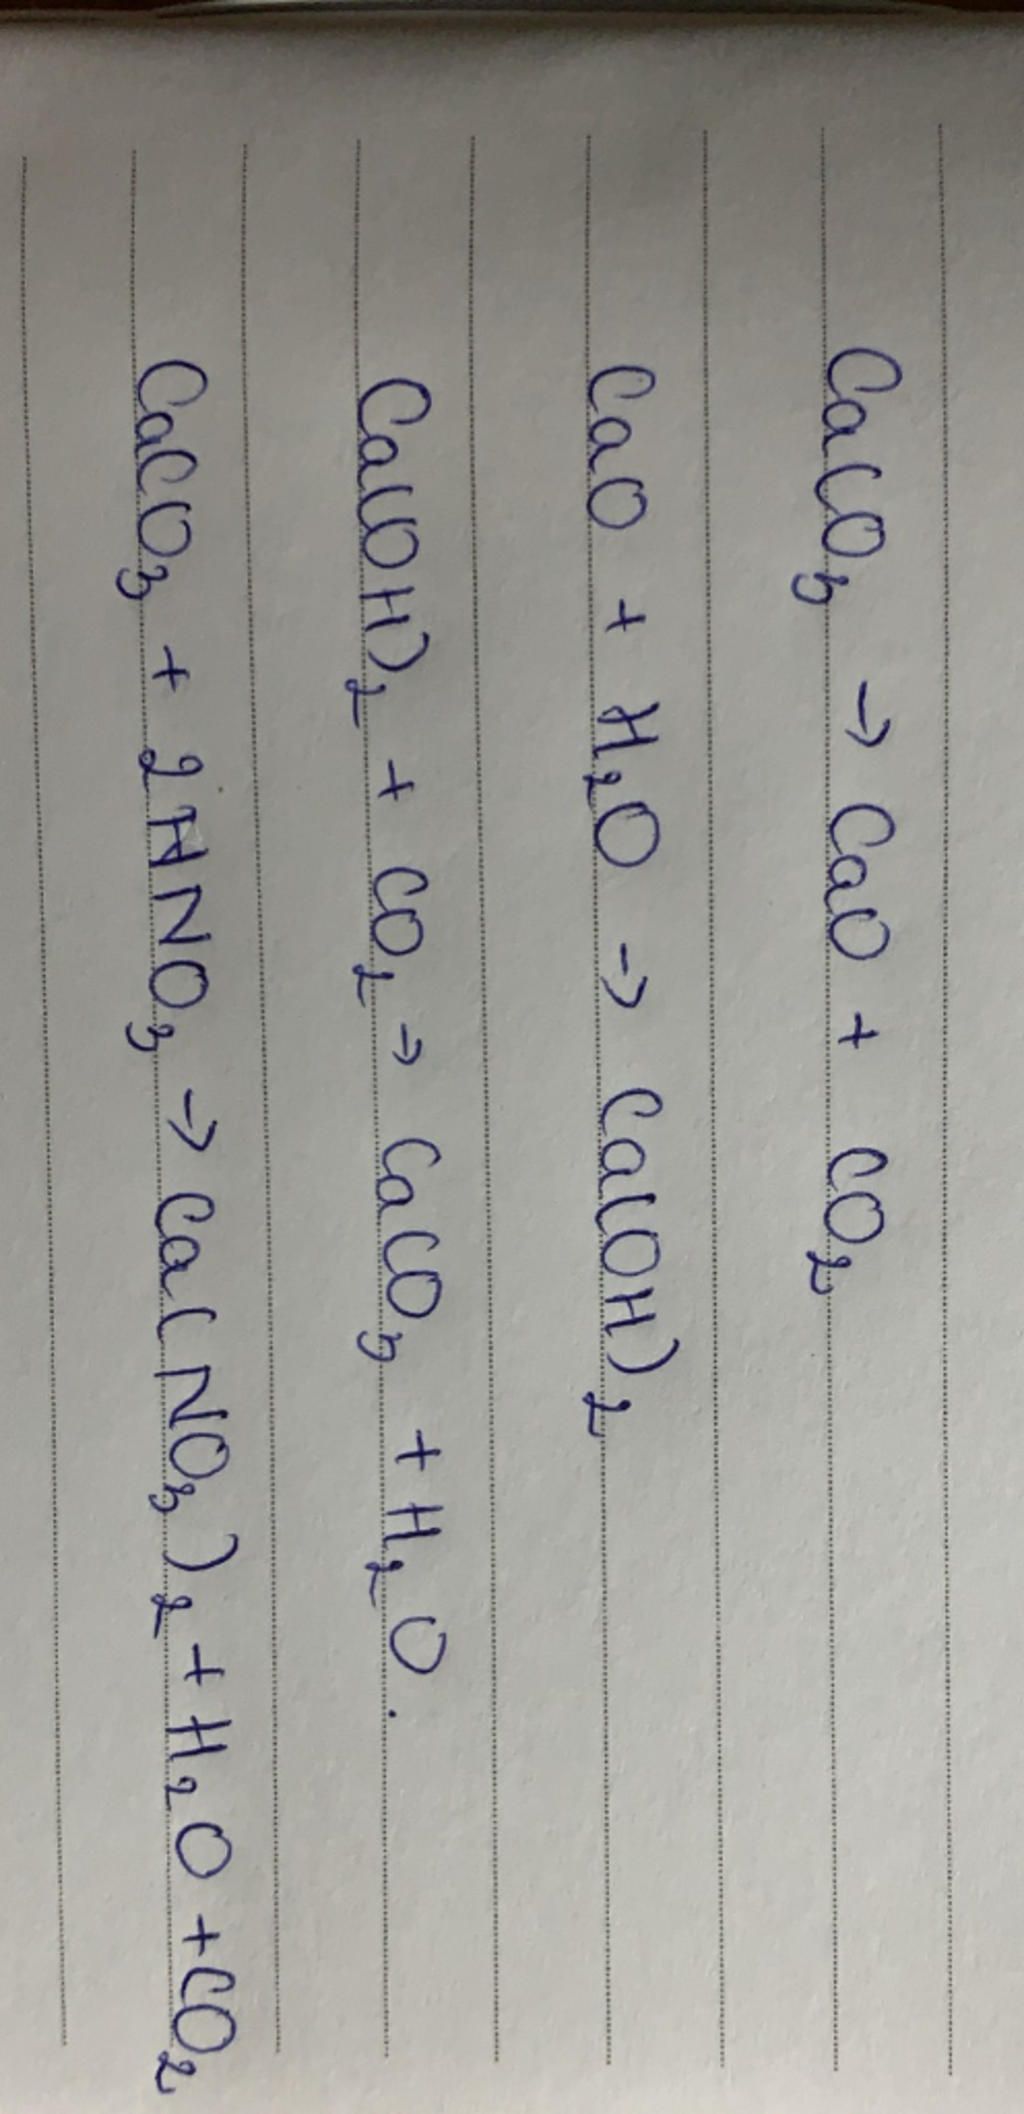 CaCO₃ → CaO + CO₂
CaO + H₂O → Ca(OH)₂
Ca(OH)₂ + CO₂ → CaCO₃ + H₂O.
CaCO₃ + 2HNO₃ → Ca(NO₃)₂ + H₂O + CO₂